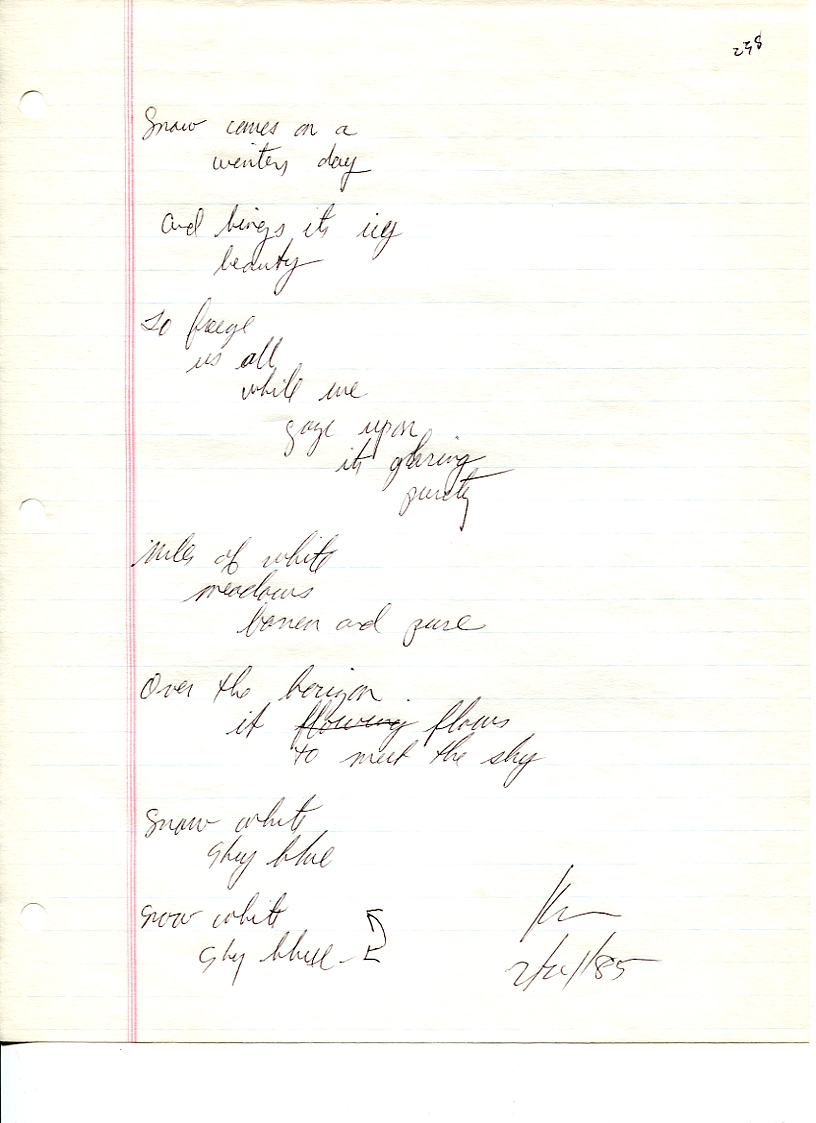 238
Snow comes on a
winters day
and brings its icy
beauty
to freeze
us all
while we
gaze upon
its glaring
purity
miles of white
meadows
barren and pure
Over the horizon
it flowing flows
to meet the sky
snow white
sky blue
snow white
sky blue